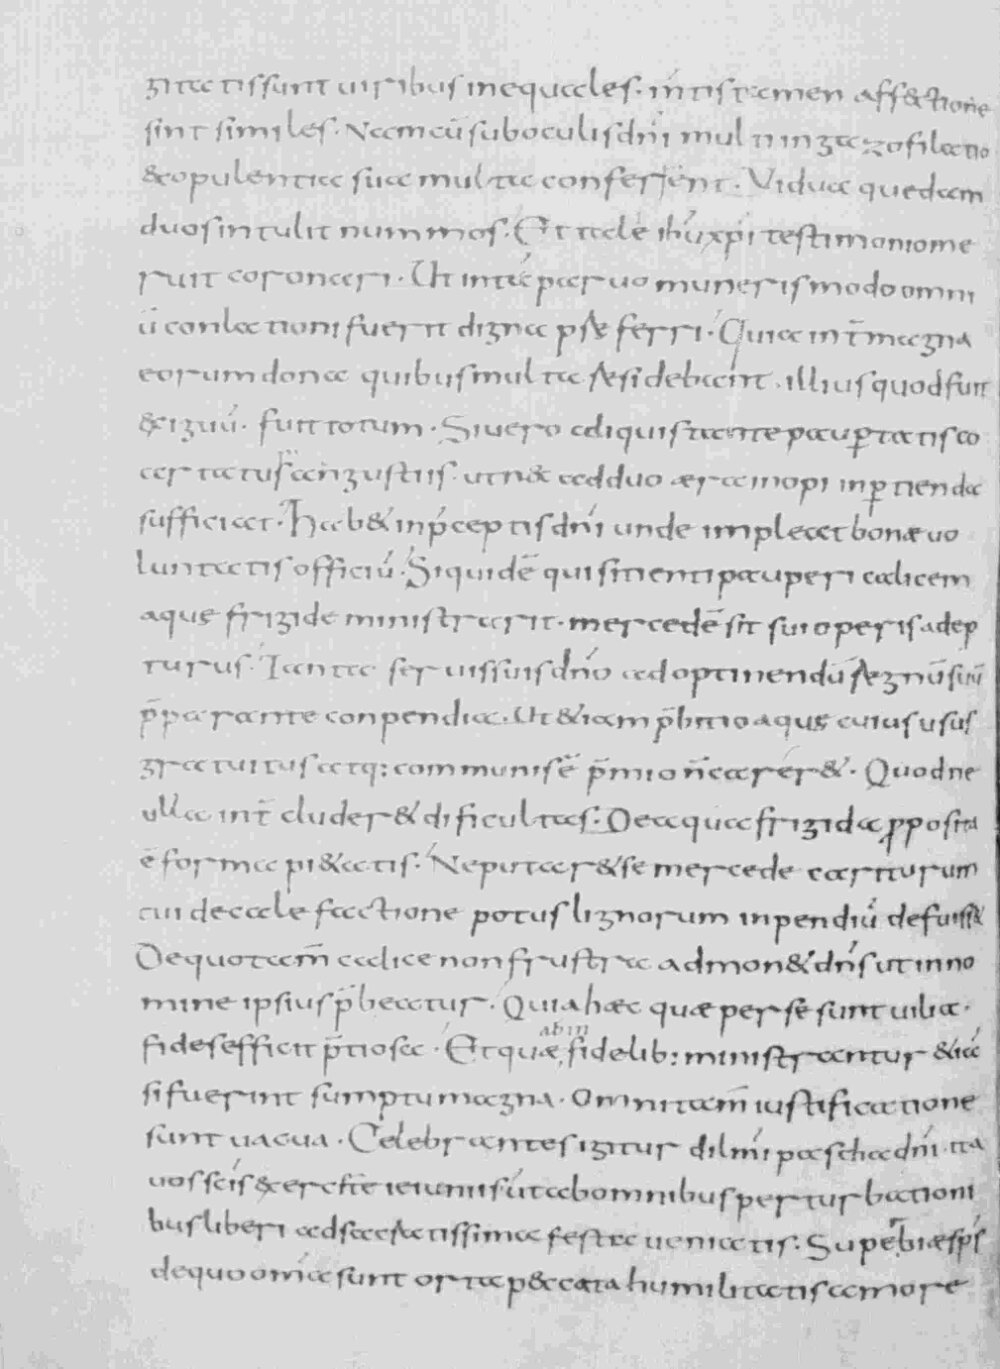 gitatissunt uiribus inequales. intis tamen aff&ctione
sint similes. Nam cū suboculis dn̄i multi in gazofilatio
& opulentia sua multa conferrent. Vidua quedam
duos intulit nummos. Et tale ihū xp̄i testimonio me
ruit coronari. Ut inta paruo muneris modo omni
ū conlationi fuerit digna p̄ferri. Quia int̄ magna
eorum dona quibus multa resideba͞nt. illius quod fuit
& iguū. fuit totum. Si uero aliquis tante paup̄tatis co
artatus angustiis. ut n& ad duo æra inopi inp̄tienda
sufficiat. Hab& in p̄ceptis dn̄i unde impleat bonæ uo
luntatis officiū. Siquidē qui sitienti pauperi calicem
aquę frigide ministrarit. mercedē sit sui operis adep
turus. Tanta seruis suis dn̄s ad optinendū regnū suū
p̄parante conpendia. Ut &iam p̄bitio aquę cuius usus
gratuitus atq: communis ē p̄mio n̄ car&. Quod ne
ulla int̄cluder& dificultas. De aqua frigida p̄posita
ē forma pi&atis. Ne putar& se mercede cariturum
cui de calefactione potus lignorum inpendiū defuiss&
De quo tam̄ calice non frustra admon& dn̄s ut in no
mine ipsius p̄beatur. Quia hæc quæ per se sunt uilia.
fides efficit p̄tiosa. Et quæ ab in fidelib: ministrantur &iā
si fuerint sumptu magna. Omni tam̄ iustificatione
sunt uacua. Celebrantes igitur dilm̄i pascha dn̄i. ita
uos scīs &erc̄te ieiuniis ut ab omnibus perturbationi
bus liberi ad sacratissima festa ueniatis. Superbiæ sp̄s
de quo om̄a sunt orta p&cata humilitatis amore